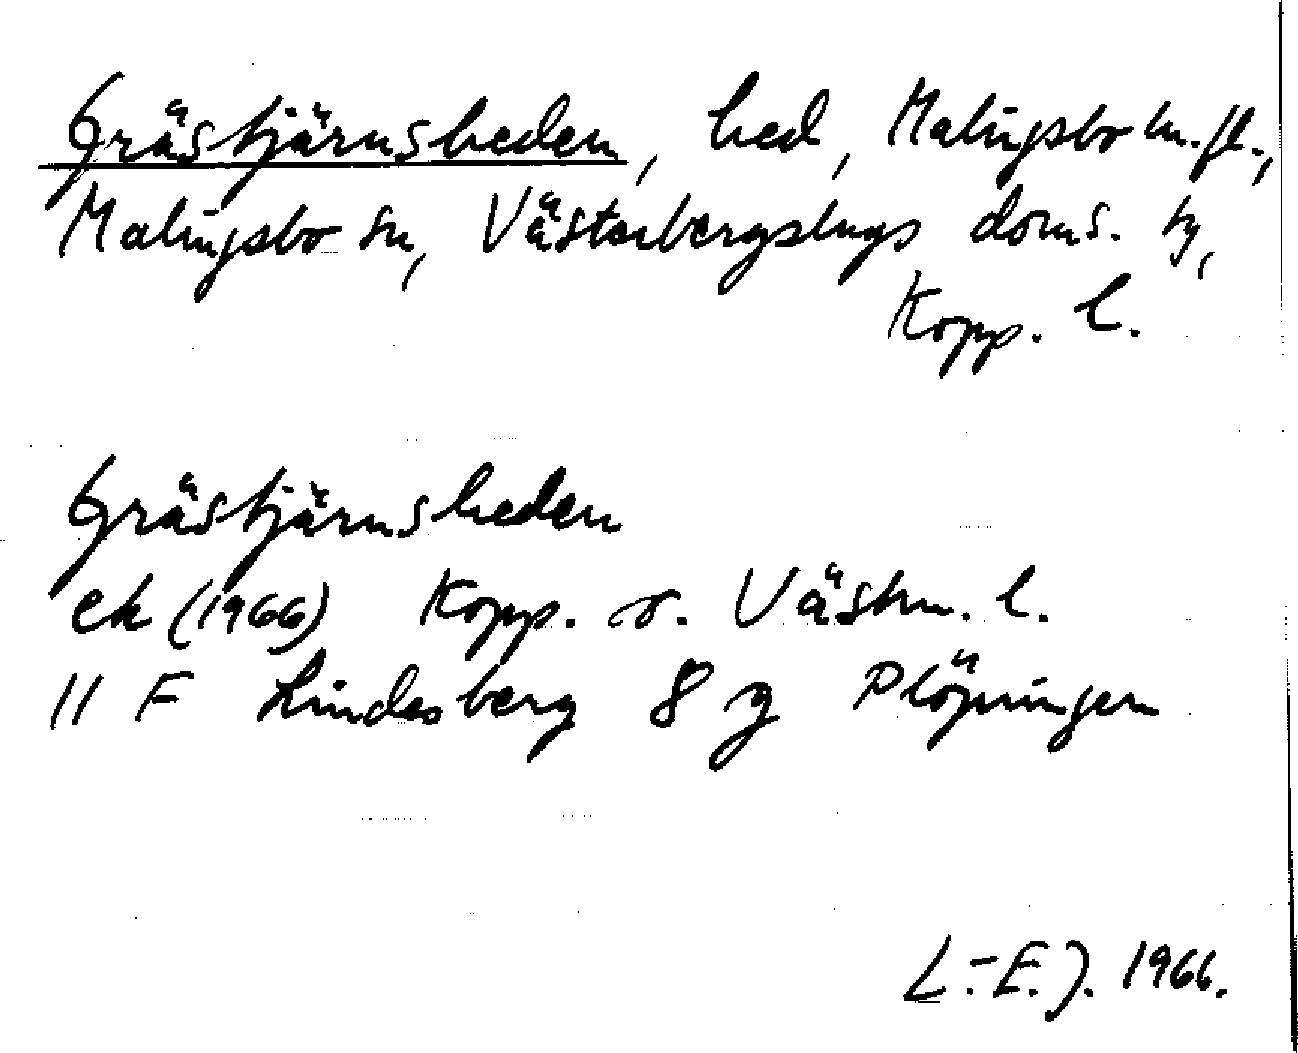 Grästjärnsheden, hed, Malingsbo kn.fl.,
Malingsbo sn, Västerbergslags doms. hy,
Kopp. l.
Grästjärnsheden
ek (1966) Kopp. o. Västm. l.
11 F Lindesberg 8 g Plöjningen
L.-E. J. 1966.